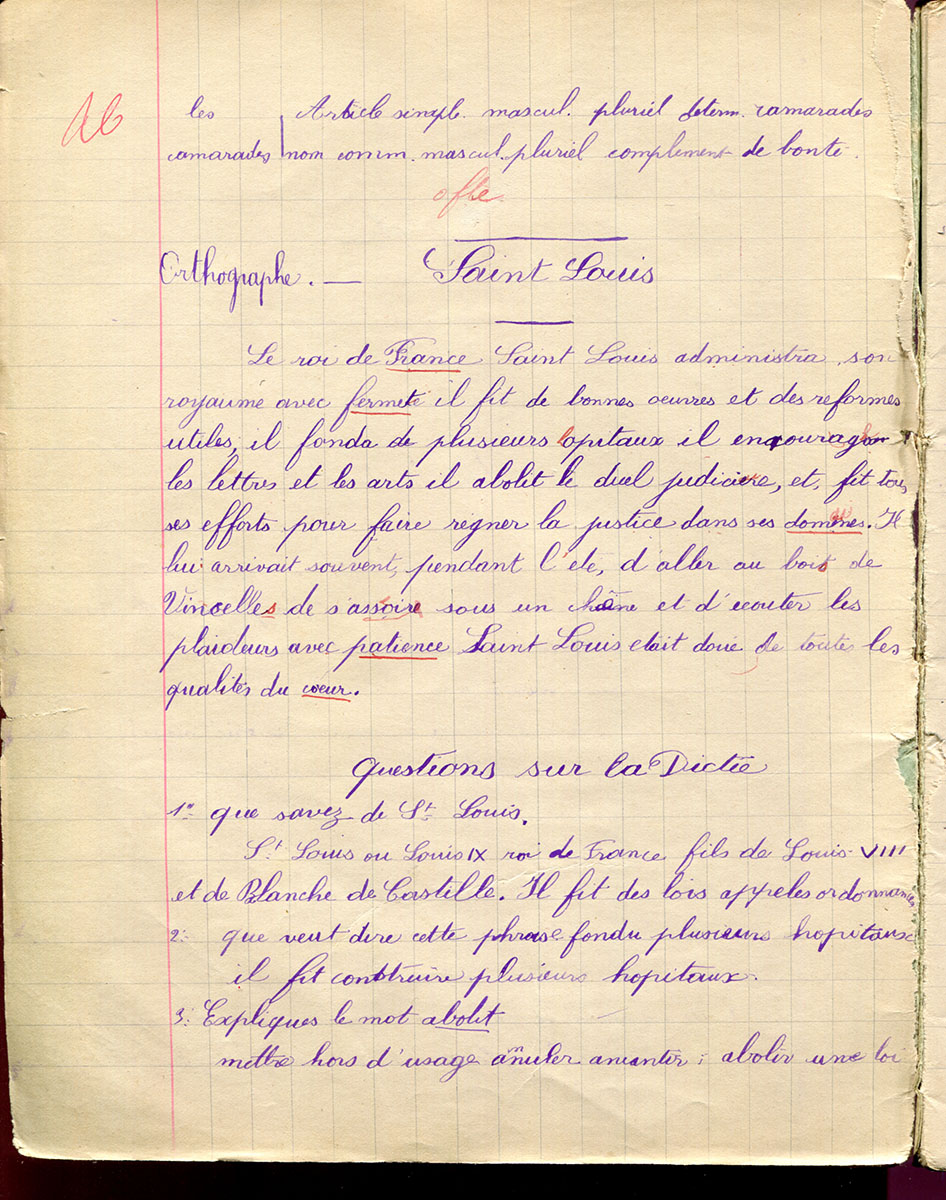 les Article simpl. mascul. pluriel determ. camarades
camarades nom comm. mascul. pluriel complement de bonte.
Orthographe. — Saint Louis
Le roi de France Saint Louis administra son
royaume avec fermeté il fit de bonnes oeuvres et des reformes
utiles, il fonda de plusieurs opitaux il encouragea
les lettres et les arts il abolit le duel judiciere, et, fit tous
ses efforts pour faire regner la justice dans ses domenes. Il
lui arrivait souvent, pendant l'éte, d'aller au bois de
Vincelles de s'assoire sous un chêne et d'ecouter les
plaideurs avec patience Saint Louis etait doué de toutes les
qualités du coeur.
Questions sur la Dictée
1º que savez de St Louis.
St Louis ou Louis IX roi de France fils de Louis VIII
et de Blanche de Castille. Il fit des lois appeles ordonnances
2º que veut dire cette phrase fondu plusieurs hopitaux
il fit contruire plusieurs hopitaux.
3º Expliques le mot abolit
mettre hors d'usage annuler aneantir : abolir une loi